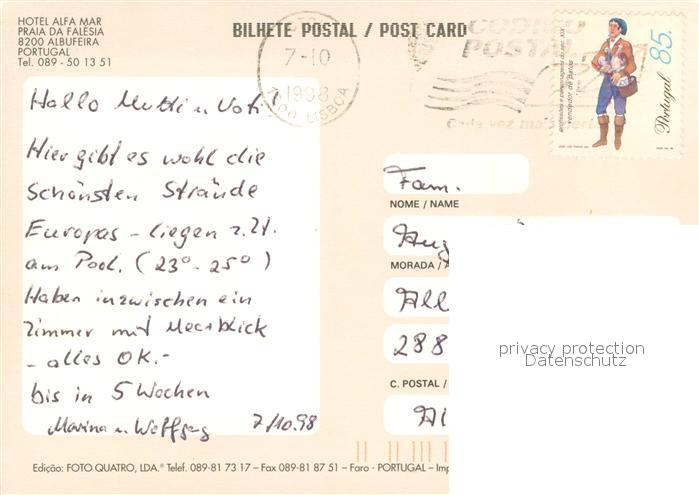 HOTEL ALFA MAR
PRAIA DA FALÉSIA
8200 ALBUFEIRA
PORTUGAL
Tel. 089 - 50 13 51
BILHETE POSTAL / POST CARD
7-10
1998
LISBOA
CÓDIGO
POSTAL
vendedor de Patos
Portugal
85.
Hallo Mutti u. Vati!
Hier gibt es wohl die
schönsten Strände
Europas - liegen z. Zt.
am Pool. (23° - 25°)
Haben inzwischen ein
Zimmer mit Meerblick
- alles OK.-
bis in 5 Wochen
Marina u. Wolfgang 7/10.98
Fam.
NOME / NAME
MORADA /
All
288
C. POSTAL /
privacy protection
Datenschutz
Edição: FOTO QUATRO, LDA.® Telef. 089-81 73 17 – Fax 089-81 87 51 – Faro - PORTUGAL – Imp